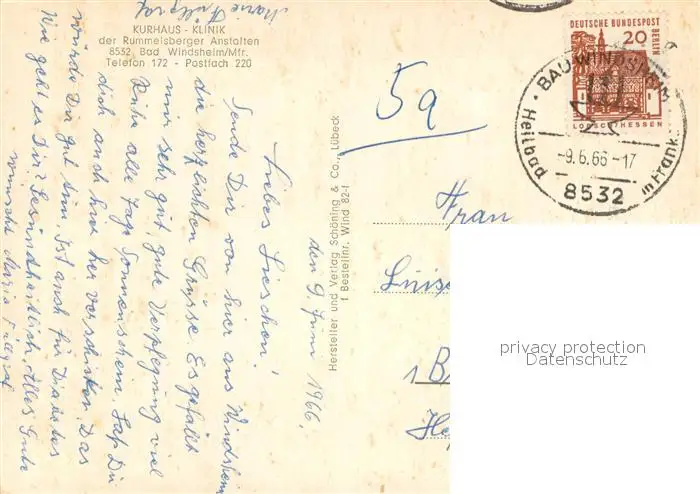 KURHAUS - KLINIK
der Rummelsberger Anstalten
8532 Bad Windsheim/Mfr.
Telefon 172 - Postfach 220
den 9. Juni 1966.
Liebes Lieschen!
Sende Dir von hier aus Windsheim
die herzlichsten Grüsse. Es gefällt
mir sehr gut, gute Verpflegung viel
Ruhe alle Tage Sonnenschein. Laß Du
dich auch hier her verschicken. Das
würde Dir gut tun. Ist auch für Diabetes
Wie geht es Dir? Gesundheitlich, Alles Gute
wünscht Maria
Hersteller und Verlag Schöning & Co., Lübeck
f Bestellnr. Wind 82-f
5a
DEUTSCHE BUNDESPOST
BERLIN
20
LORSCH/HESSEN
BAD WINDSHEIM
Heilbad in Frank
-9.6.66-17
8532
Frau
Luise
1 B
privacy protection
Datenschutz